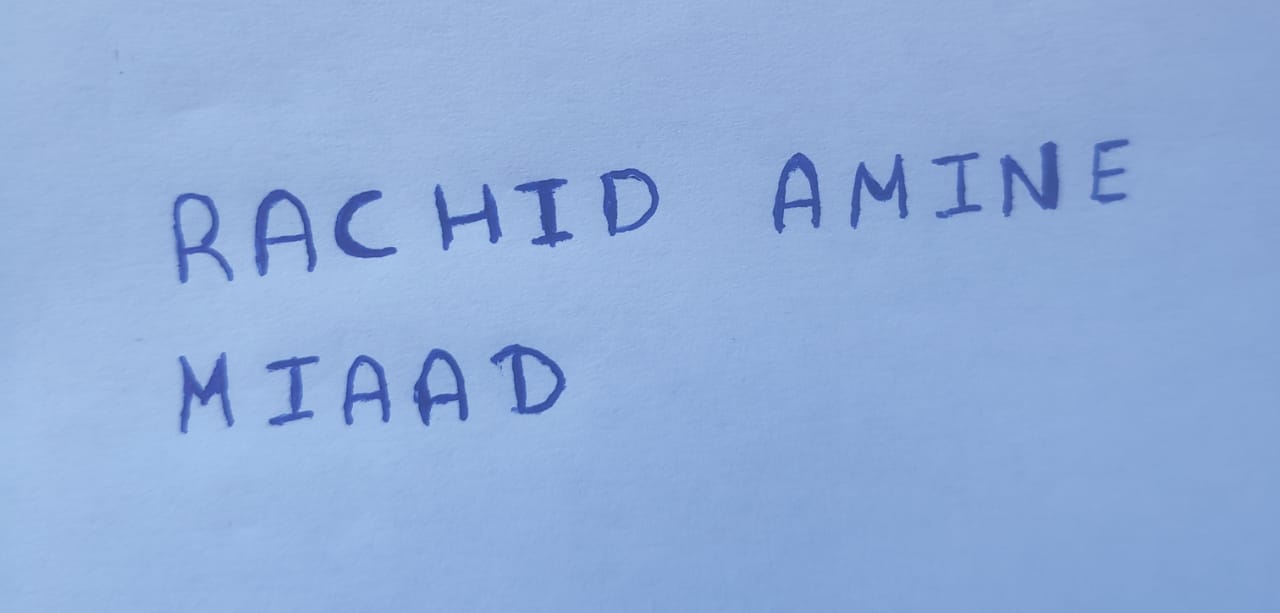 RACHID AMINE
MIAAD